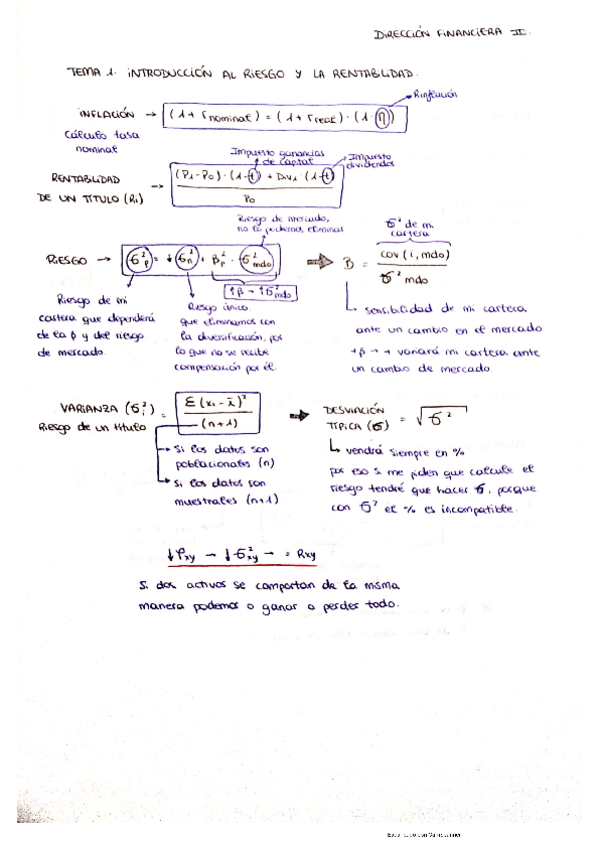 DIRECCIÓN FINANCIERA II.
TEMA 1. INTRODUCCIÓN AL RIESGO Y LA RENTABILIDAD.
R inflación
INFLACIÓN → (1 + r nominal) = (1 + r real) · (1 · η)
Cálculo tasa
nominal
Impuesto ganancias
de capital
Impuesto
dividendos
RENTABILIDAD
DE UN TITULO (Ri) → (P1 - P0) · (1-t) + Div1 · (1-t)
P0
Riesgo de mercado,
no lo podemos eliminar
σ² de mi
cartera
RIESGO → σ²p = ↓ σ²n + β²p · σ²mdo ⇒ B = cov (i, mdo)
σ² mdo
↑β → ↑σ²mdo
Riesgo de mi
cartera que dependerá
de la β y del riesgo
de mercado.
Riesgo único
que eliminamos con
la diversificación, por
lo que no se recibe
compensación por él.
sensibilidad de mi cartera
ante un cambio en el mercado
+β → + variará mi cartera ante
un cambio de mercado.
VARIANZA (σi²) = Σ (xi - x̄)²
(n+1)
Riesgo de un titulo
→ Si los datos son
poblacionales (n)
→ Si los datos son
muestrales (n+1)
⇒ DESVIACIÓN
TÍPICA (σ) = √σ²
vendrá siempre en %
por eso si me piden que calcule el
riesgo tendré que hacer σ, porque
con σ² el % es incompatible.
↓ρxy → ↓σ²xy → = Rxy
Si dos activos se comportan de la misma
manera podemos o ganar o perder todo.